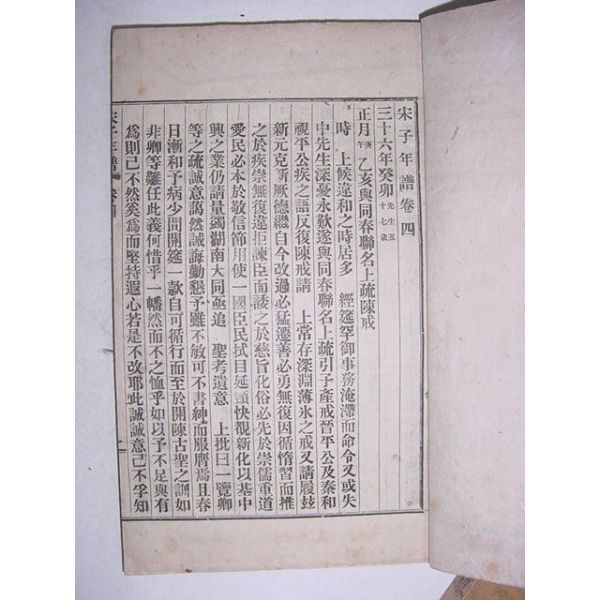 宋子年譜卷四
三十六年癸卯先生五十七歲
正月庚午乙亥與同春聯名上疏陳戒
時 上候違和之時居多 經筵罕御事務淹滯而命令又或失
中先生深憂永歎遂與同春聯名上疏引子產戒晉平公及秦和
視平公疾之語反復陳戒請 上常存深淵薄氷之戒又請履玆
新元克新厥德繼自今改過必猛遷善必勇無復因循惰習而推
之於疾祟無復違拒諫臣面諉之於慈旨化俗必先於崇儒重道
愛民必本於敬信節用使一國臣民拭目延頸快覩新化以基中
興之業仍請量蠲湖南大同亟追 聖考遺意 上批曰一覽卿
等之疏誠意藹然誠誨勤懇予雖不敏可不書紳而服膺焉且春
日漸和予病少間開筵一款自可循行而至於開陳古聖之訓如
非卿等難任此義何惜乎一幡然而不之恤乎如以予不足與有
爲則己不然奚爲而堅持遐心若是不改耶此誠誠意己不孚知
宋子年譜 卷四